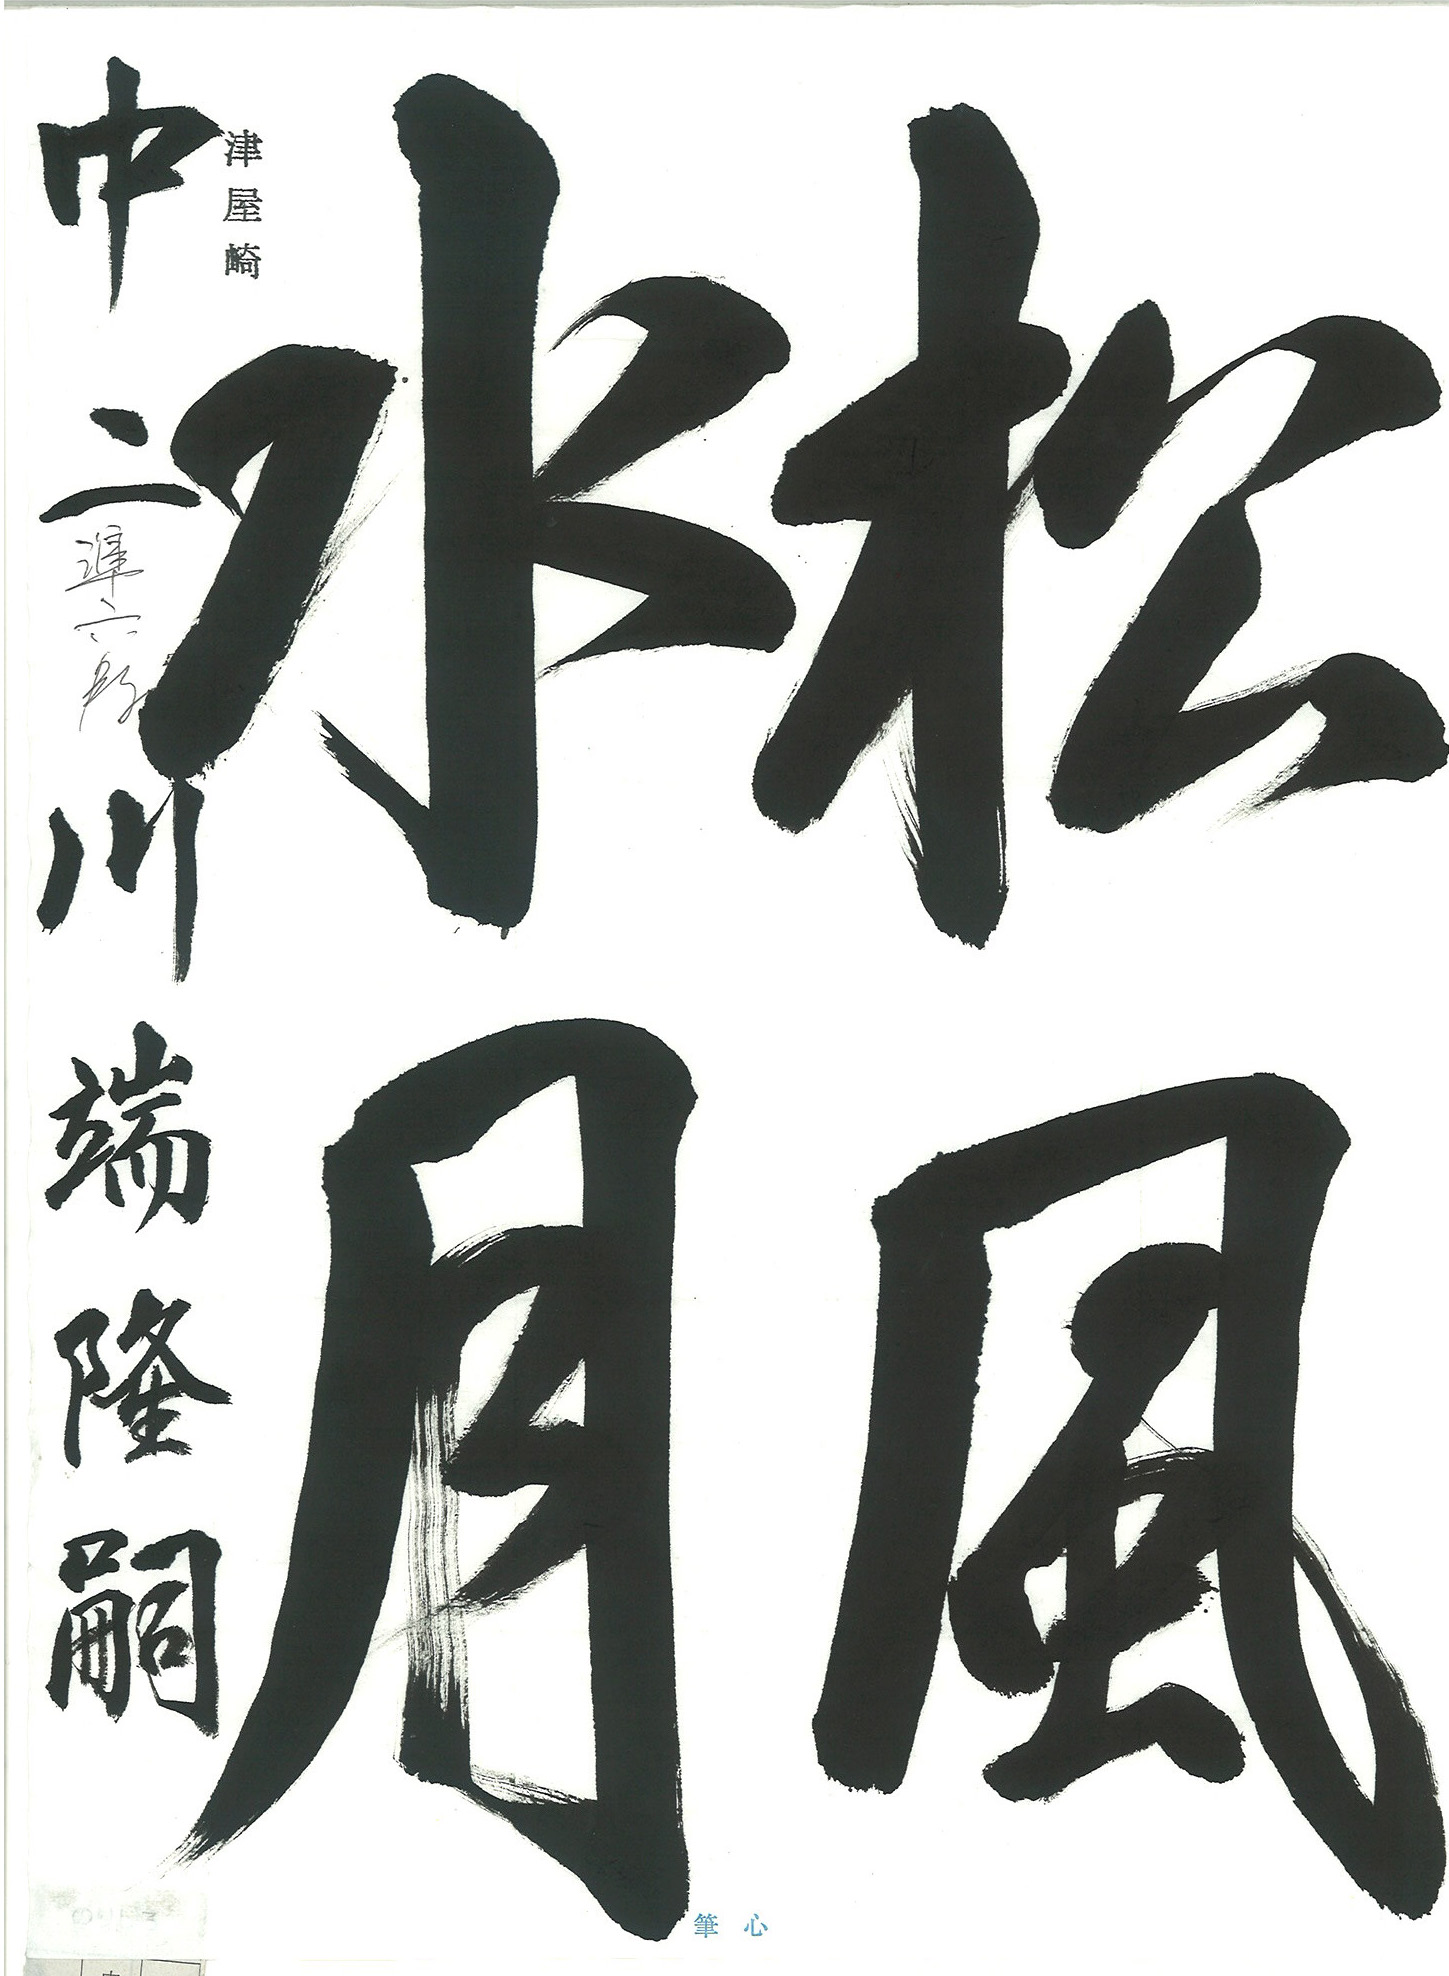 松風
水月
津屋崎
中二
準六段
川端隆嗣
筆心